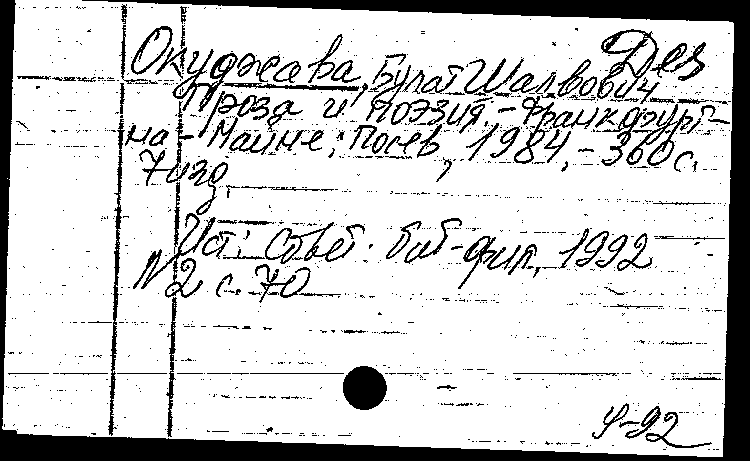 Дез
Окуджава, Булат Шалвович
Проза и поэзия. - Франкфурт-
на-Майне: Посев, 1984, - 360 с.
7 изд.
Ист: Совет. биб-фия, 1992
N 2 с. 70
У-92